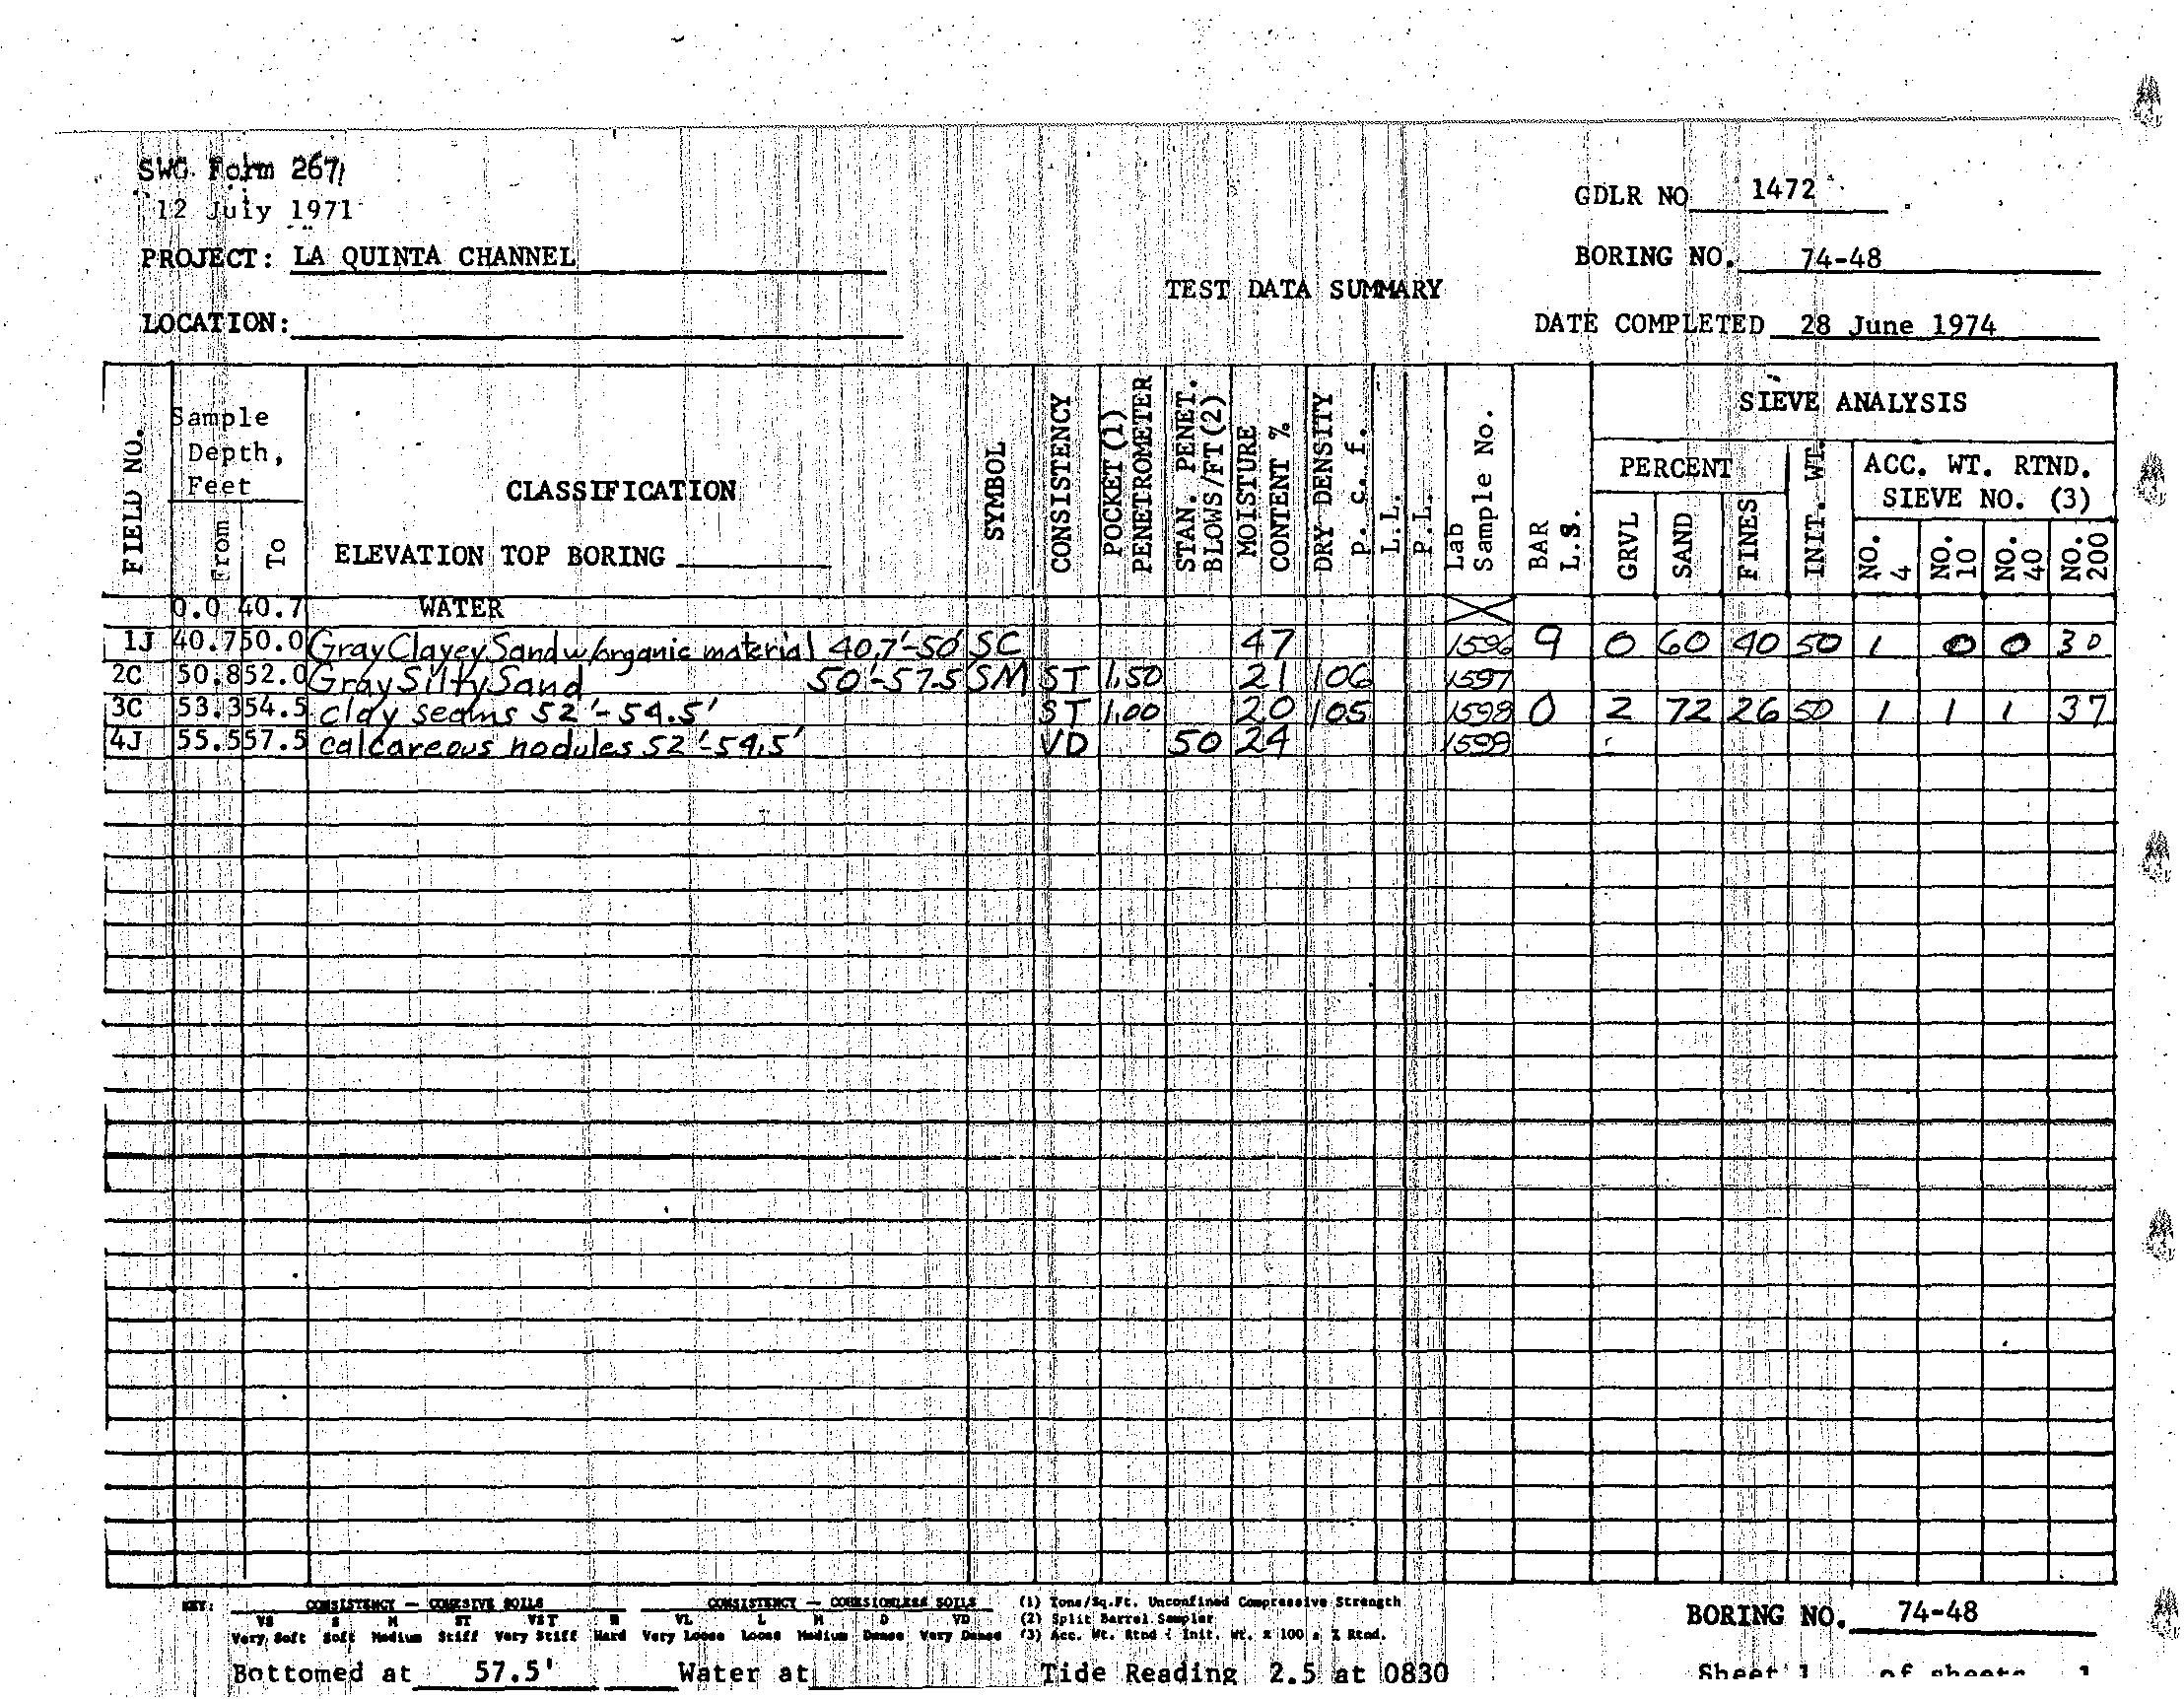 SWG Form 267
12 July 1971
GDLR NO 1472
PROJECT: LA QUINTA CHANNEL
BORING NO. 74-48
TEST DATA SUMMARY
LOCATION:
DATE COMPLETED 28 June 1974
FIELD NO.
Sample Depth, Feet
From
To
CLASSIFICATION
ELEVATION TOP BORING
SYMBOL
CONSISTENCY
POCKET (1) PENETROMETER
STAN. PENET. BLOWS/FT(2)
MOISTURE CONTENT %
DRY DENSITY p. c. f.
L.L.
P.L.
Lab Sample No.
BAR L.S.
SIEVE ANALYSIS
PERCENT
GRVL
SAND
FINES
INIT. WT.
ACC. WT. RTND.
SIEVE NO. (3)
NO. 4
NO. 10
NO. 40
NO. 200
0.0 40.7 WATER
1J 40.7 50.0 Gray Clayey Sand w/organic material 40.7'-50' SC 47 1596 9 0 60 40 50 1 0 0 30
2C 50.8 52.0 Gray Silty Sand 50'-57.5 SM ST 1.50 21 106 1597
3C 53.3 54.5 clay seams 52'-54.5' ST 1.00 20 105 1598 0 2 72 26 50 1 1 1 37
4J 55.5 57.5 calcareous nodules 52'-54.5' VD 50 24 1599
KEY: CONSISTENCY — COHESIVE SOILS CONSISTENCY — COHESIONLESS SOILS (1) Tons/Sq.Ft. Unconfined Compressive Strength
VS S M ST VST H VL L M D VD (2) Split Barrel Sampler
Very Soft Soft Medium Stiff Very Stiff Hard Very Loose Loose Medium Dense Very Dense (3) Acc. Wt. Rtnd ÷ Init. Wt. x 100 = % Rtnd.
BORING NO. 74-48
Bottomed at 57.5' Water at Tide Reading 2.5 at 0830
Sheet 1 of sheets 1